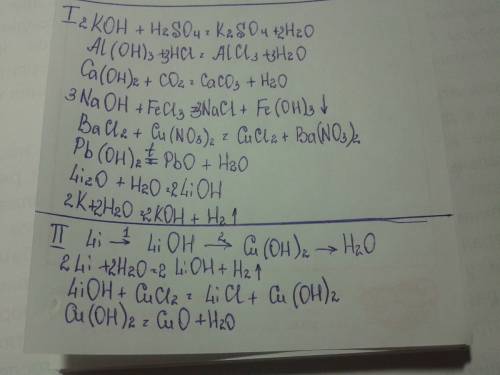 I 2KOH + H2SO4 = K2SO4 + 2H2O
Al(OH)3 + 3HCl = AlCl3 + 3H2O
Ca(OH)2 + CO2 = CaCO3 + H2O
3NaOH + FeCl3 = 3NaCl + Fe(OH)3 ↓
BaCl2 + Cu(NO3)2 = CuCl2 + Ba(NO3)2
Pb(OH)2 t= PbO + H2O
Li2O + H2O = 2LiOH
2K + 2H2O = 2KOH + H2 ↑
II Li →1 LiOH →2 Cu(OH)2 → H2O
2Li + 2H2O = 2LiOH + H2 ↑
LiOH + CuCl2 = LiCl + Cu(OH)2
Cu(OH)2 = CuO + H2O